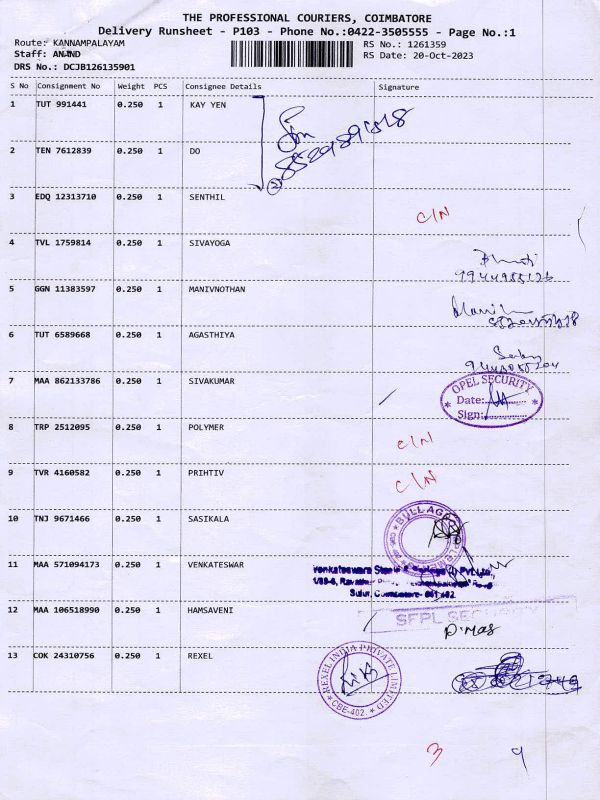 THE PROFESSIONAL COURIERS, COIMBATORE
Delivery Runsheet - P103 - Phone No.:0422-3505555 - Page No.:1
Route: KANNAMPALAYAM RS No.: 1261359
Staff: ANAND RS Date: 20-Oct-2023
DRS No.: DCJB126135901
S No Consignment No Weight PCS Consignee Details Signature
1 TUT 991441 0.250 1 KAY YEN
2 TEN 7612839 0.250 1 DO
3 EDQ 12313710 0.250 1 SENTHIL
C/N
4 TVL 1759814 0.250 1 SIVAYOGA
5 GGN 11383597 0.250 1 MANIVNOTHAN
6 TUT 6589668 0.250 1 AGASTHIYA
7 MAA 862133786 0.250 1 SIVAKUMAR
OPEL SECURITY
Date:
Sign:
8 TRP 2512095 0.250 1 POLYMER
C/N
9 TVR 4160582 0.250 1 PRIHTIV
C/N
10 TNJ 9671466 0.250 1 SASIKALA
BULL
11 MAA 571094173 0.250 1 VENKATESWAR
Venkateswara
Sulur, Coimbatore- 641 402.
12 MAA 106518990 0.250 1 HAMSAVENI
SFPL SECURITY
13 COK 24310756 0.250 1 REXEL
REXEL INDIA PRIVATE LIMITED
CBE-402
3 9